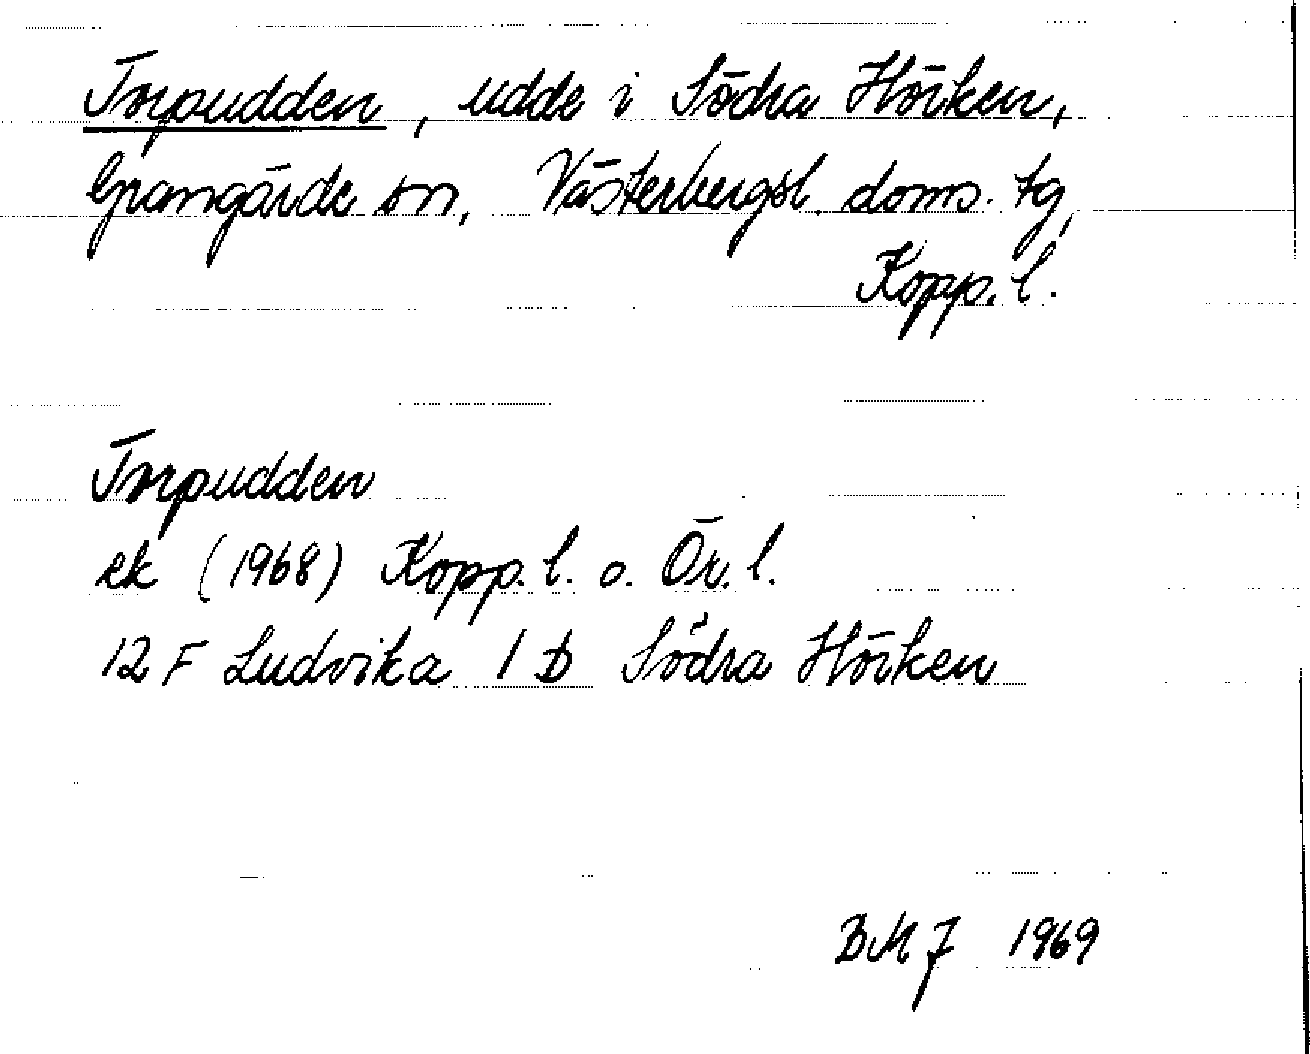 Torpudden, udde i Södra Hörken,
Grangärde sn, Västerbergsl. doms. tg,
Kopp. l.
Torpudden
ek (1968) Kopp. l. o. Ör. l.
12 F Ludvika 1 D Södra Hörken
BMJ 1969